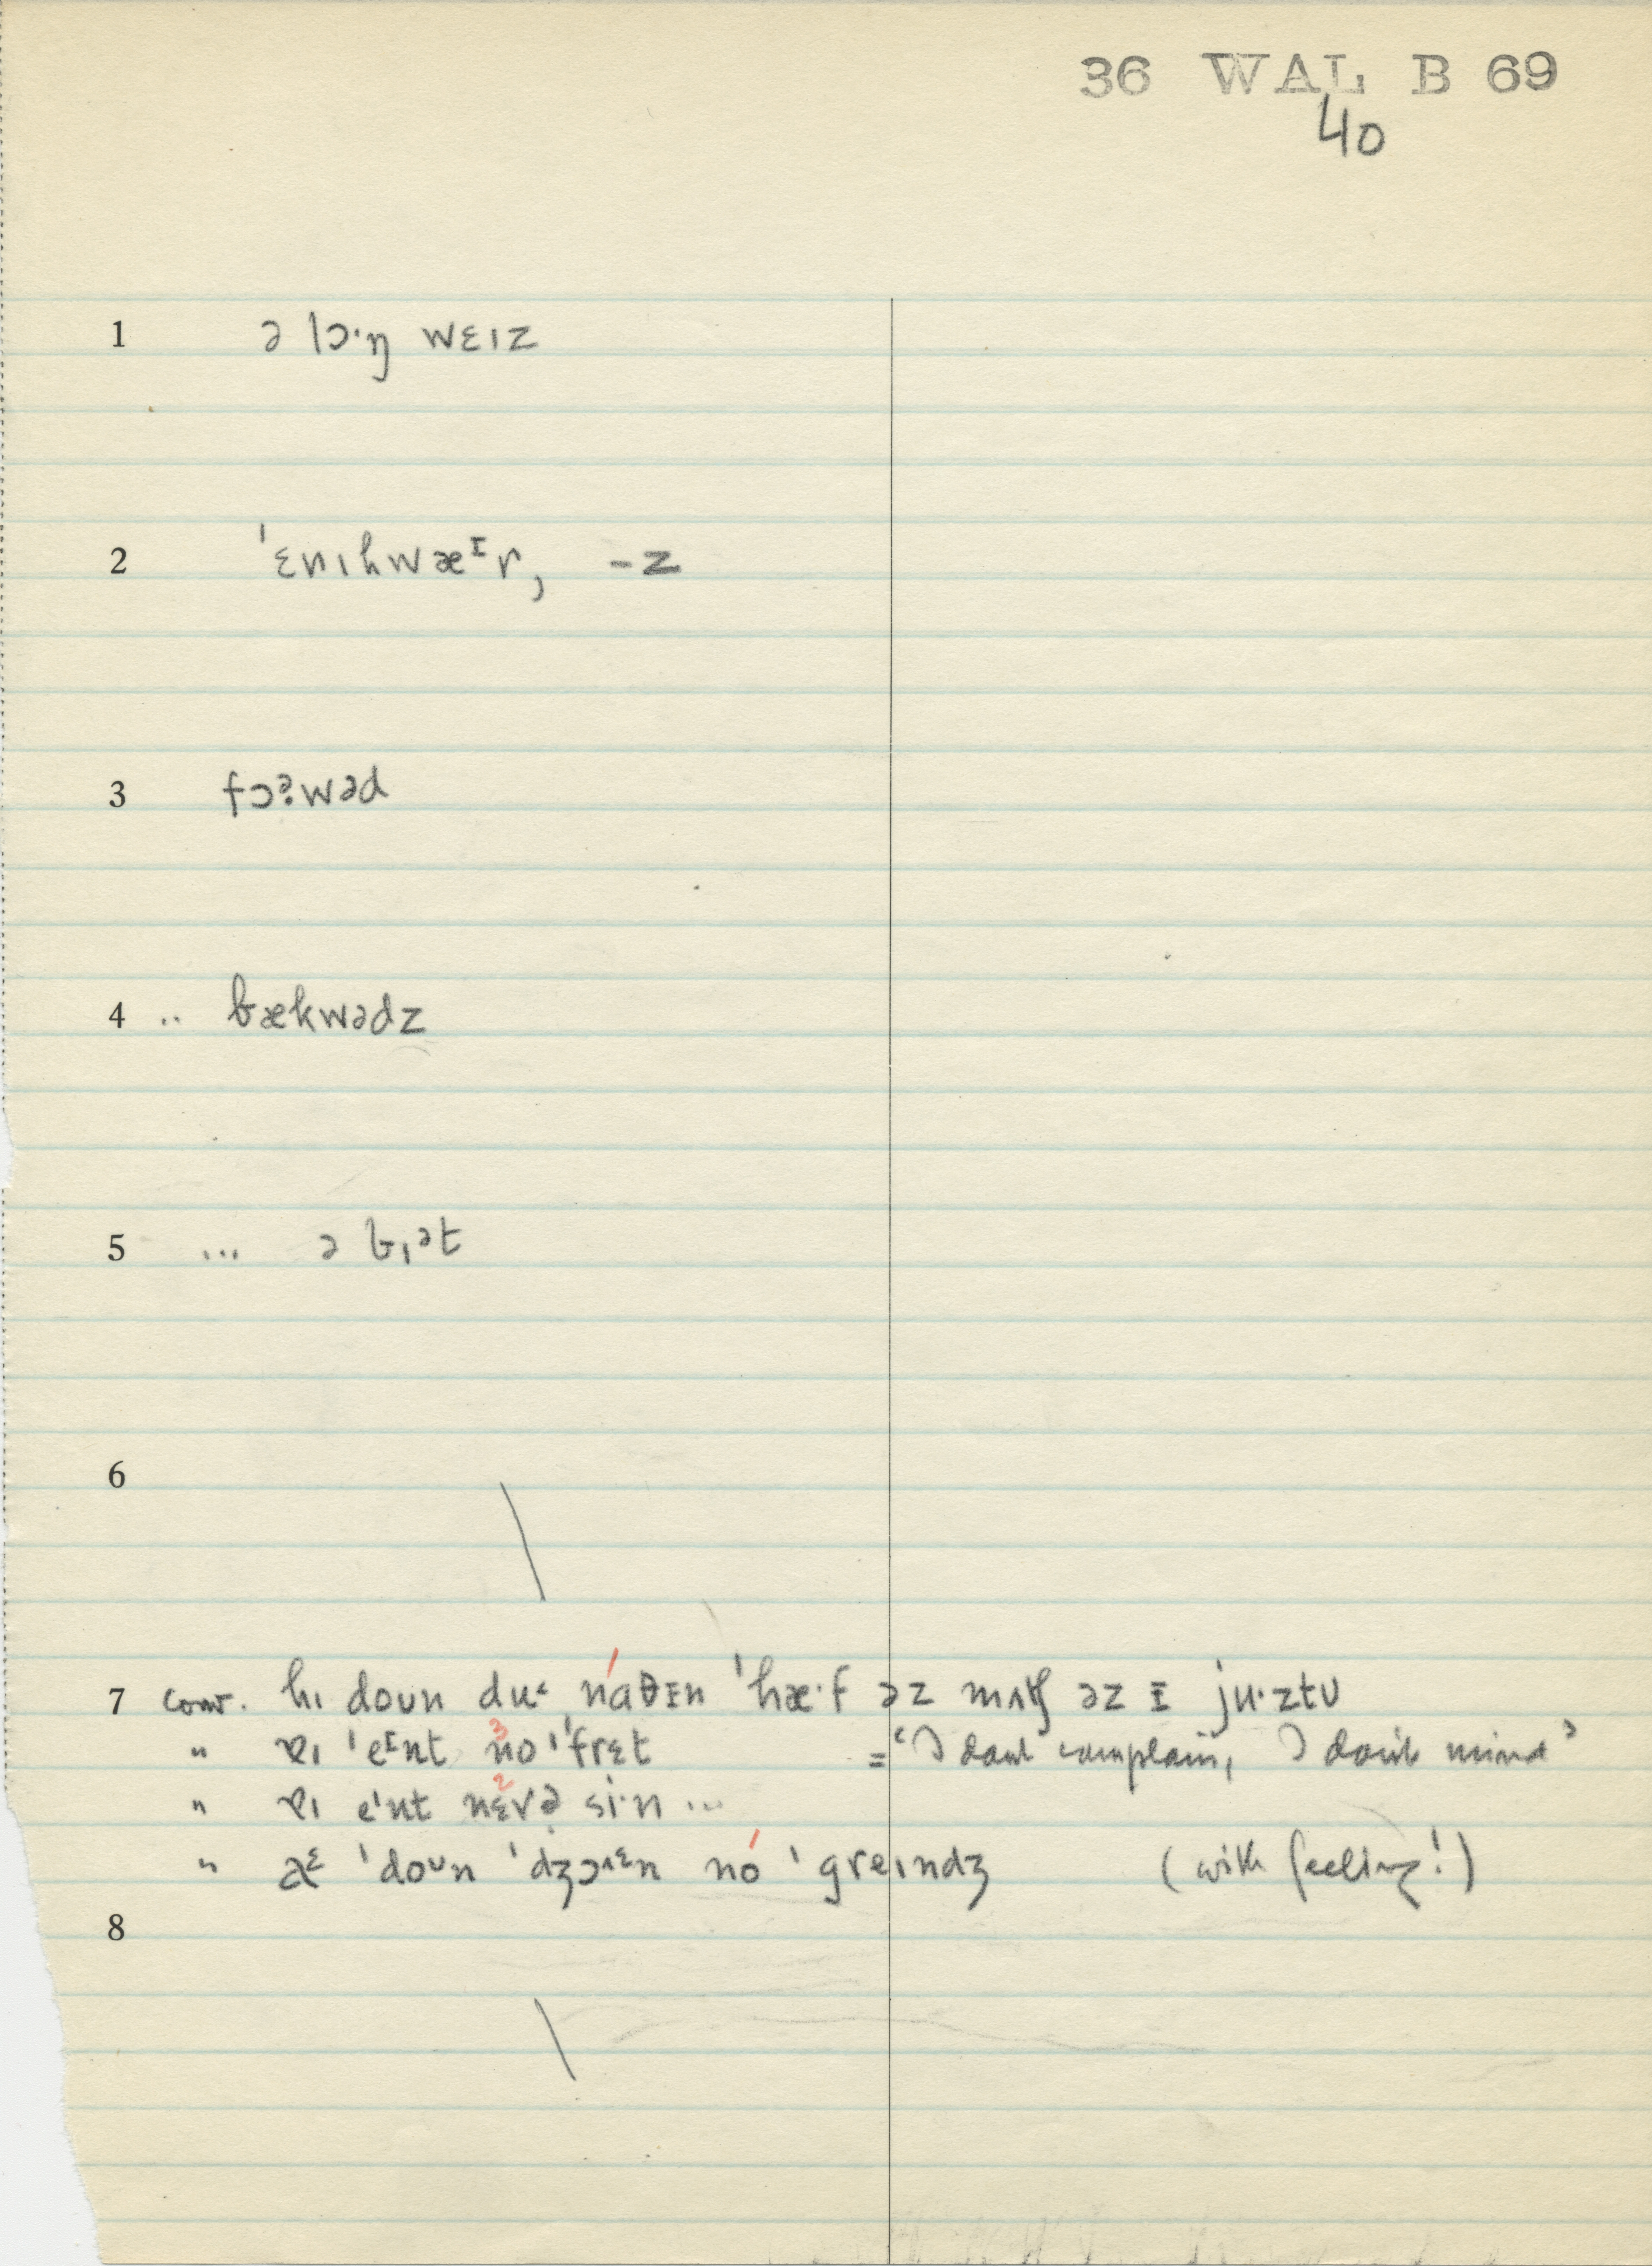 36 WAL B 69
40
1 ə lɔ·ŋ wɛɪz
2 ˈɛnɪhwæᶦr, -z
3 fɔə̣wəd
4 .. bækwədz
5 ... ə bɪət
6
7 conv. hɪ doʊn du naθɪn ˈhæ·f əz mʌʧ əz ɪ ju·ztʊ
" ɐɪ ˈeᶦnt no ˈfrɛt = ‘I dont complain, I don't mind’
" ɐɪ eˈnt nɛvə̣ si·n ...
" aᵋ ˈdoᶷn ˈdʒɔɪᵋn no ˈgreɪndʒ (with feeling!)
8